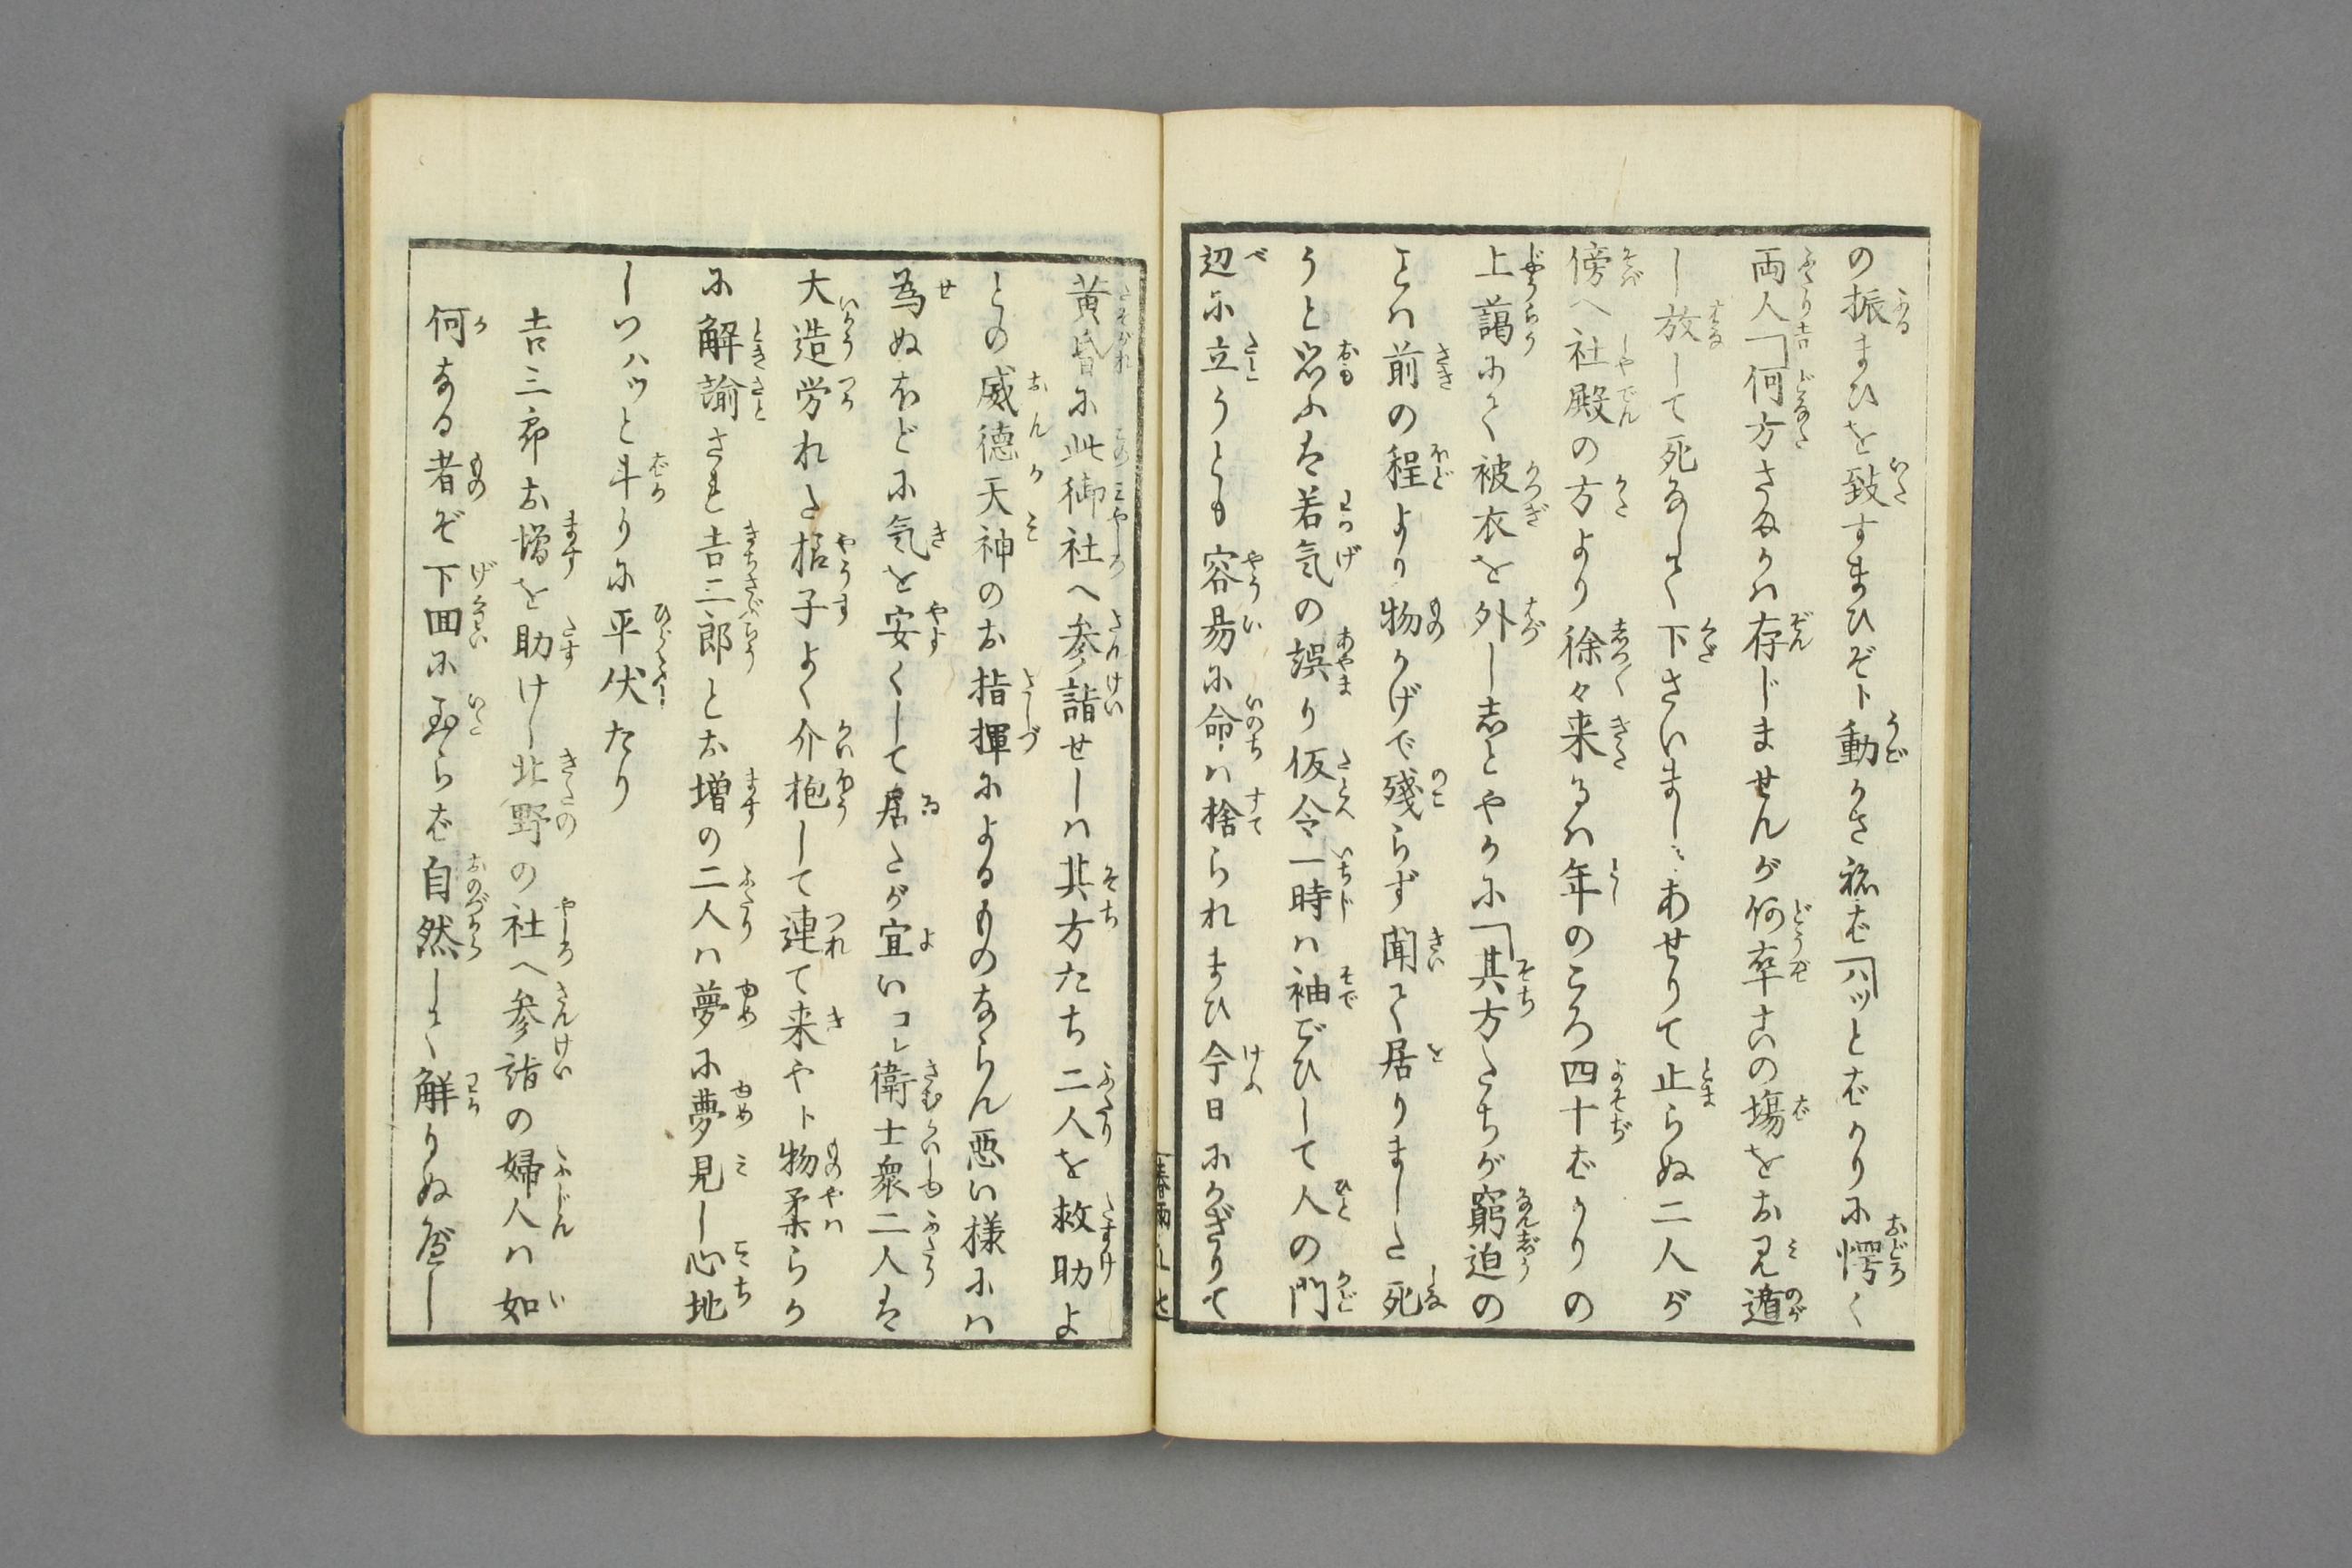 の振まひを致すまひぞト動かさねば「ハツとばかりに愕く
両人吉「何方さまかは存じませんが何卒古の場をお見遁
し放して死なして下さいましトあせりて止らぬ二人が
傍へ社殿の方より徐々来るは年のころ四十ばかりの
上﨟にて被衣を外し志とやかに「其方たちが窮迫の
ことは前の程より物かげで残らず聞て居りました死
うと思ふは若気の誤り仮令一時は袖ごひして人の門
辺に立うとも容易に命は捨られまひ今日にかぎりて
黄昏に此御社へ参詣せしは其方たち二人を救助よ
との威徳天神のお指揮によるものならん悪い様には
為ぬほどに気を安くして居たが宜いコレ衛士衆二人は
大造労れた様子よく介抱して連て来やト物柔らか
に解諭され吉三郎とお増の二人は夢に夢見し心地
しつハツと斗りに平伏たり
吉三郎お増を助けし北野の社へ参詣の婦人は如
何なる者ぞ下回に至らば自然して解りぬべし